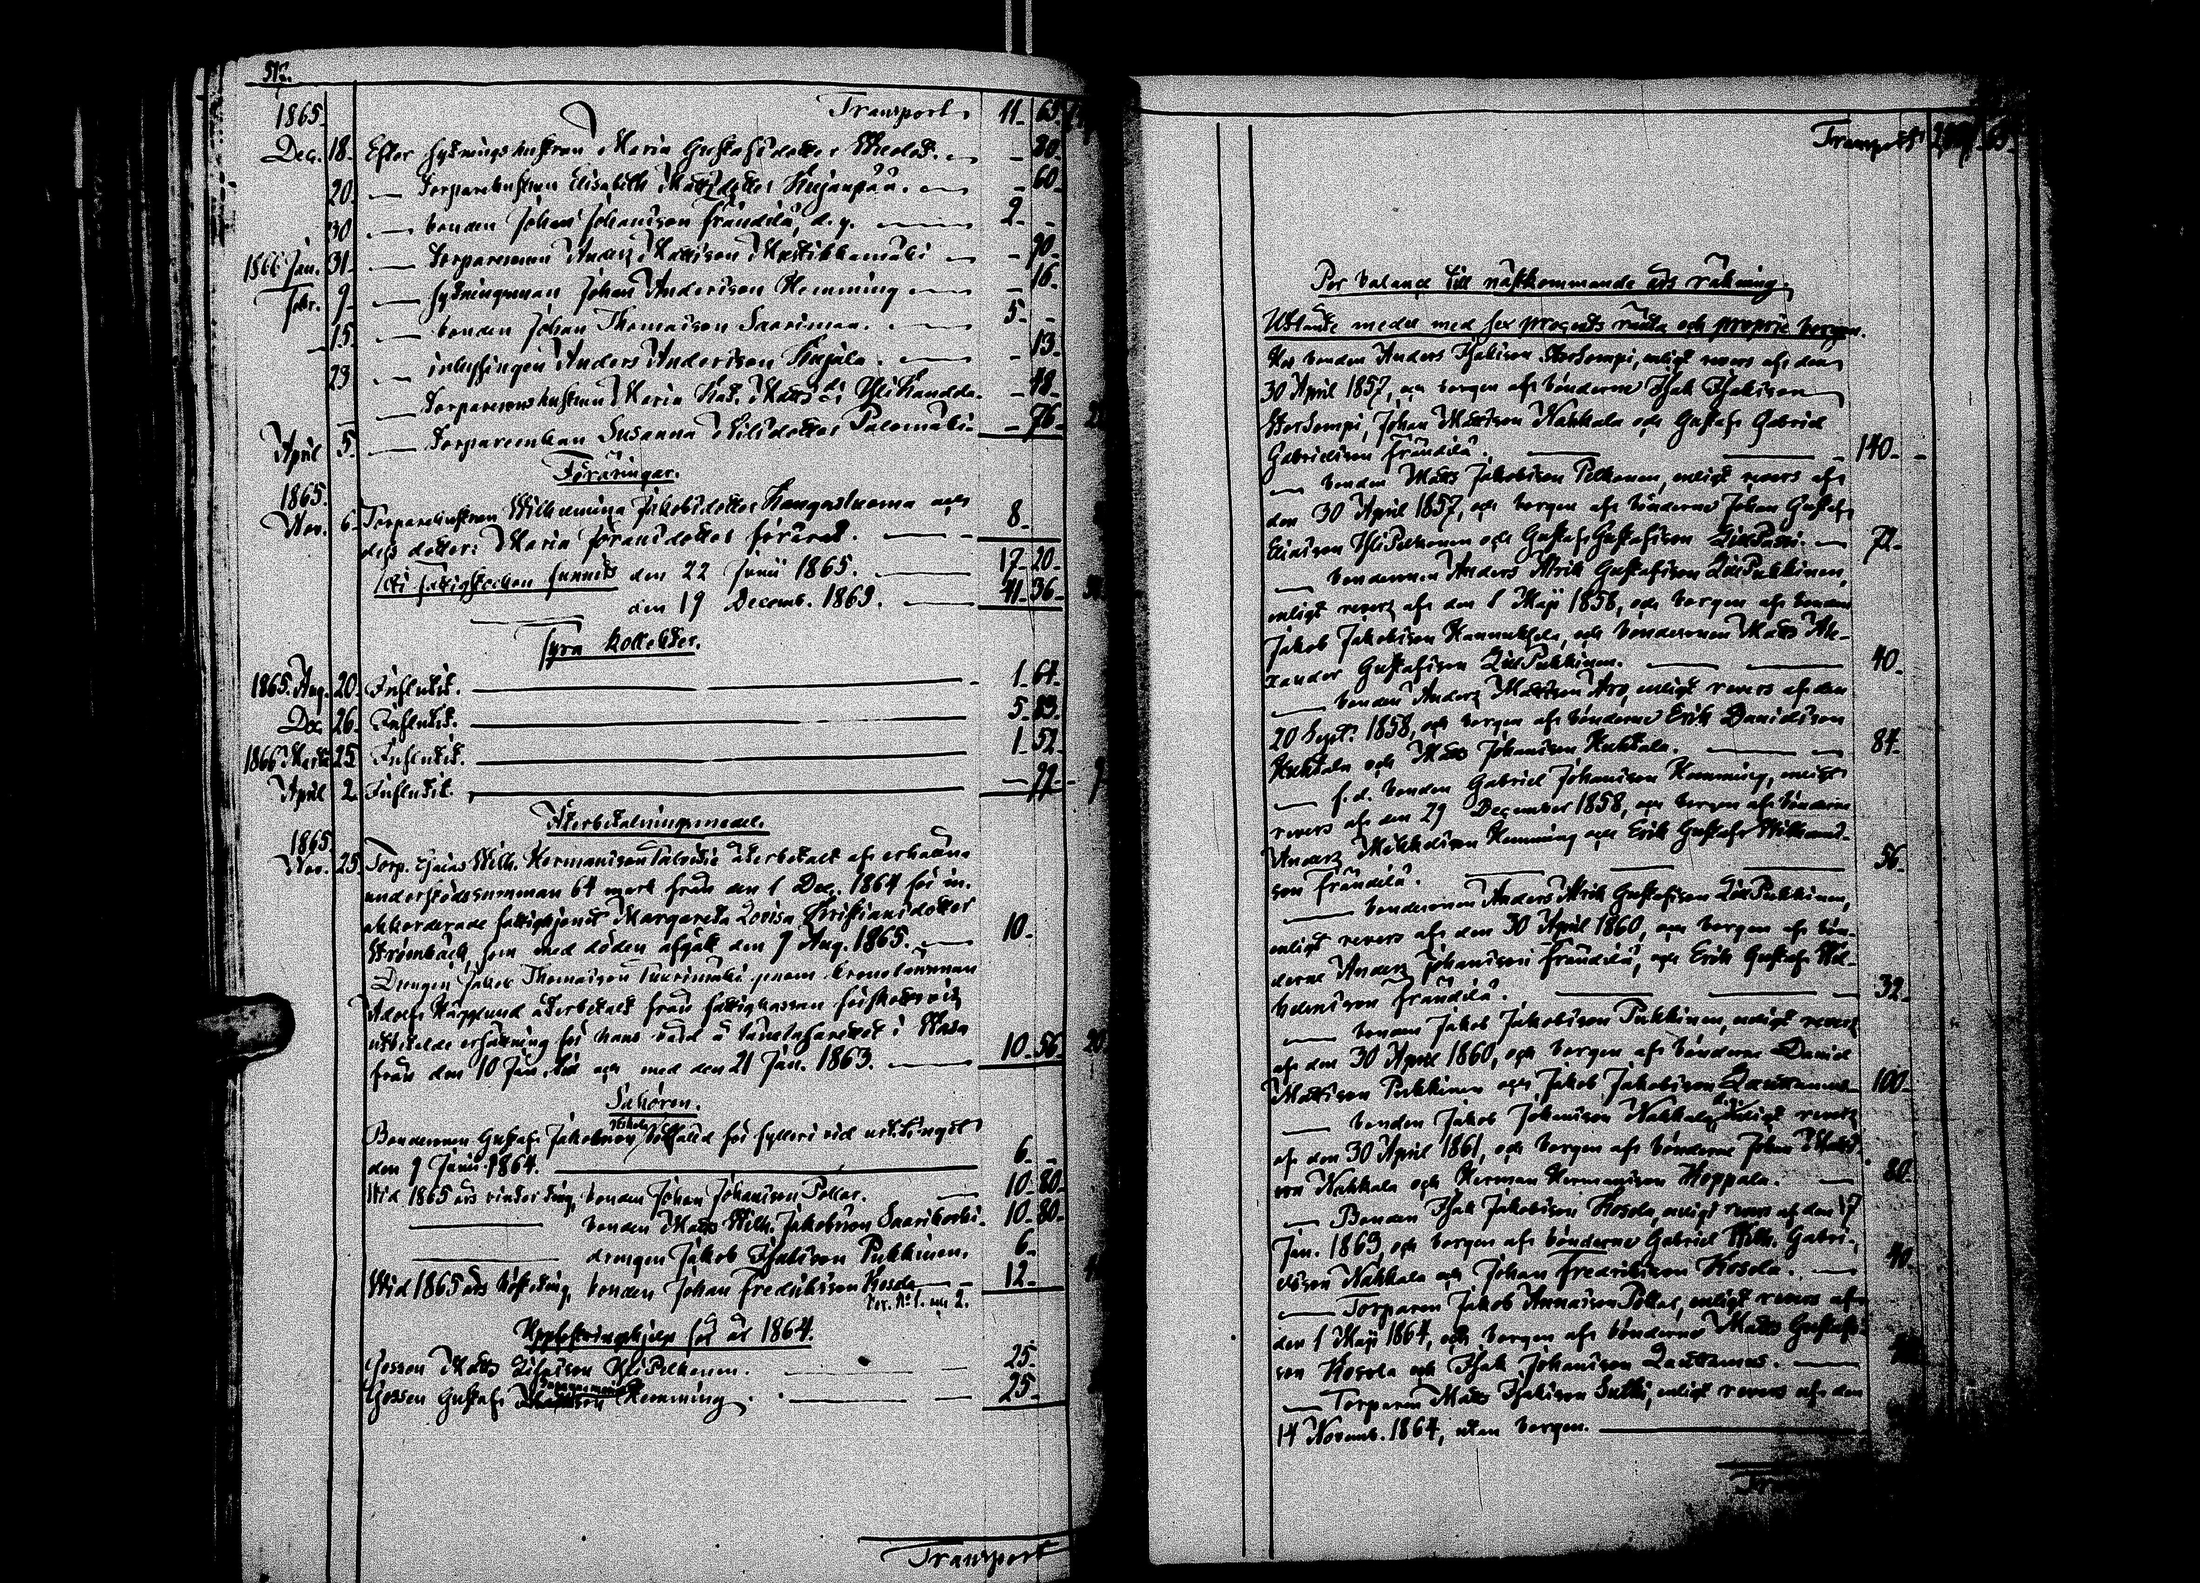 1865. Transport 11. 65
Dec. 18. Efter hyrningshustrun Maria Gustafsdotter — 80.
20. — Torparehustrun Elisabeth Mattsdotter Kujanpää. — 60.
30 — bonden Johan Johansson Frändilä, d.y. — 2. -
1866 Jan. 31. — Torparesonen Anders Mattsson — 70.
Febr. 9. — hyrningsman Johan Andersson Hemming — 16.
15. — bonden Johan Thomasson Saarimaa. — 5. -
— inhysingen Anders Andersson Kujala. — 13.
23. — Torparehustrun Maria Kaj. Mattsd:r — 48.
April 5. — Torpareenkan Susanna Nilsdotter Palomäki — 76.
Föräringar.
1865.
Nov. 6. Torparehustrun Wilhelmina Jakobsdotter Kangasluoma och 8.
dess dotter: Maria Göransdotter förärat. —
I fattigstocken funnits den 22 Junii 1865. — 17. 20.
den 19 Decemb. 1865. — 41. 36.
Fyra kollekter.
1865. Aug. 20. Influtit. — 1. 64.
Dec. 26. Influtit. — 5. 83.
1866 Mars 25. Influtit. — 1. 52.
April 2. Influtit. — 22.
Återbetalningsmedel.
1865.
Nov. 25. Torp. Esaias Wilh. Hermansson återbetalt af erhållna
understödssumman 64 mark från den 1 Dec. 1864 för in-
ackorderade fattighjonet Margareta Lovisa Christiansdotter
Strömbäck, som med döden afgått den 7 Aug. 1865. — 10.
Drengen Jakob Thomasson Tuurimäki genom kronolänsman
Adolf Hägglund återbetalt från fattigkassan
utbetalde ersättning för hans vård å länslasarettet i Wasa
från den 10 Jan. till och med den 21 Jan. 1863. — 10. 56.
Sakören.
Bondesonen Gustaf Jakobsson för fylleri vid
den 9 Junii 1864. — 6. -
Wid 1865 års vinterting, bonden Johan Johansson Pollar. — 10. 80.
— bonden Matts Wilh. Jakobsson Saarikoski. 10. 80.
— drengen Jakob Isaksson Pukkinen. 6.
Wid 1865 års höstting, bonden Johan Fredriksson Kosola — 12.
Ver. N:o 1. och 2.
Uppfostringshjelp för år 1864.
Gossen Matts Yli Pelkonen. — 25.
Gossen Gustaf Hemming. — 25.
Transport
Transport
Per balance till nästkommande års räkning.
Utlånte medel med sex procents ränta och proprie borgen.
Hos bonden Anders Isaksson StorSompi, enligt revers af den
30 April 1857, och borgen af bönderne Isak Isaksson
StorSompi, Johan Mattsson Nahkala och Gustaf Gabriel
Gabrielsson Frändilä. — 140. -
— bonden Matts Jakobsson Pelkonen, enligt revers af
den 30 April 1857, och borgen af bönderne Johan Gustaf
Eliasson YliPelkonen och Gustaf Gustafsson — 72.
— bondesonen Anders Alrik Gustafsson LillPukkinen,
enligt revers af den 1 Maji 1858, och borgen af bonden
Jakob Jakobsson Hannuksela, och bondesonen Matts Ale-
xander Gustafsson LillPukkinen. — 40.
— bonden Anders Mattsson Aro, enligt revers af den
20 Sept. 1858, och borgen af bönderne Erik Danielsson
Huhtala och Matts Johansson Huhtala. — 84.
— f.d. bonden Gabriel Johansson Hemming, enligt
revers af den 29 December 1858, och borgen af bönderne
Anders Mikkelsson Hemming och Erik Gustaf Wilhelms-
son Frändilä. — 56.
— bondesonen Anders Alrik Gustafsson LillPukkinen,
enligt revers af den 30 April 1860, och borgen af bön-
derne Anders Johansson Frändilä, och Erik Gustaf Wil-
helmsson Frändilä. — 32.
— bonden Jakob Jakobsson Pukkinen, enligt revers
af den 30 April 1860, och borgen af bönderne Daniel
Mattsson Pukkinen och Jakob Jakobsson Lauttamus — 100.
— bonden Jakob Johansson Nahkala, enligt revers
af den 30 April 1861, och borgen af bönderne Johan Matts-
son Nahkala och Herman Hermansson Hoppala. — 80.
— Bonden Isak Jakobsson Kosola, enligt revers af den 17
Jan. 1863, och borgen af bönderne Gabriel Wilh. Gabri-
elsson Nahkala och Johan Fredriksson Kosola. — 40.
— Torparen Jakob Annasson Pollar, enligt revers af
den 1 Maji 1864, och borgen af bönderne Matts Gustafs-
son Kosola och Isak Johansson Lauttamus. —
— Torparen Matts Isaksson Salli, enligt revers af den
14 Novemb. 1864, utan borgen. —